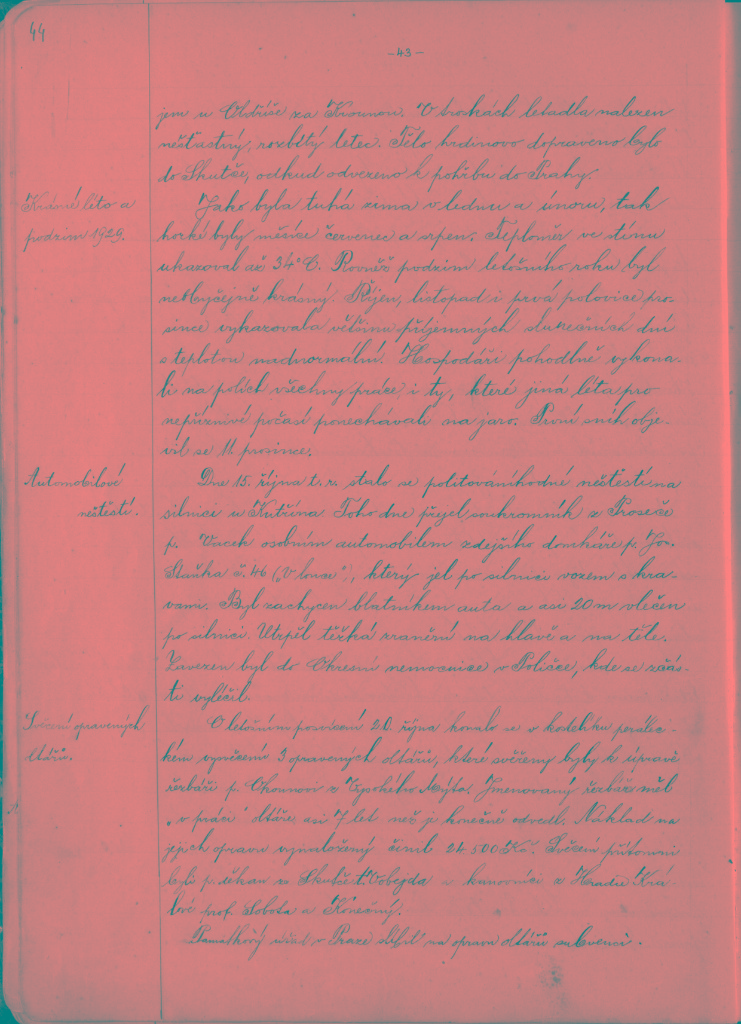 44
- 43 -
jem u Obdříče za Krounou. V troskách letadla nalezen
nešťastný, rozbitý letec. Tělo hrdinovo dopraveno bylo
do Skutče, odkud odvezeno k pohřbu do Prahy.
Krásné léto a
podzim 1929.
Jako byla tuhá zima v lednu a únoru, tak
horké byly měsíce červenec a srpen. Teploměr ve stínu
ukazoval až 34° C. Rovněž podzim letošního roku byl
neobyčejně krásný. Říjen, listopad i prvá polovice pro-
since vykazovala většinu příjemných slunečních dní
s teplotou nadnormální. Hospodáři pohodlně vykona-
li na polích všechny práce i ty, které jiná léta pro
nepříznivé počasí ponechávali na jaro. První sníh obje-
vil se 11. prosince.
Automobilové
neštěstí.
Dne 15. října t. r. stalo se politováníhodné neštěstí na
silnici u Kutřína. Toho dne přejel soukromník z Proseče
p. Vacek osobním automobilem zdejšího domkáře p. Jos.
Stančka č. 46 („V louce"), který jel po silnici vozem s kra-
vami. Byl zachycen blatníkem auta a asi 20 m vlečen
po silnici. Utrpěl těžká zranění na hlavě a na těle.
Zavezen byl do Okresní nemocnice v Poličce, kde se zčás-
ti vyléčil.
Svěcení opravených
oltářů.
O letošním posvícení 20. října konalo se v kostelíku perálec-
kém vysvěcení 3 opravených oltářů, které svěřeny byly k úpravě
řezbáři p. z Vysokého Mýta. Jmenovaný řezbář měl
„v práci" oltáře asi 7 let než je konečně odvedl. Náklad na
jejich opravu vynaložený činil 24.500 Kč. Svěcení přítomni
byli p. děkan ze Skutče Vobejda a kanovníci z Hradce Krá-
lové prof. Sobota a Konečný.
Památkový úřad v Praze udělil na opravu oltářů subvenci.